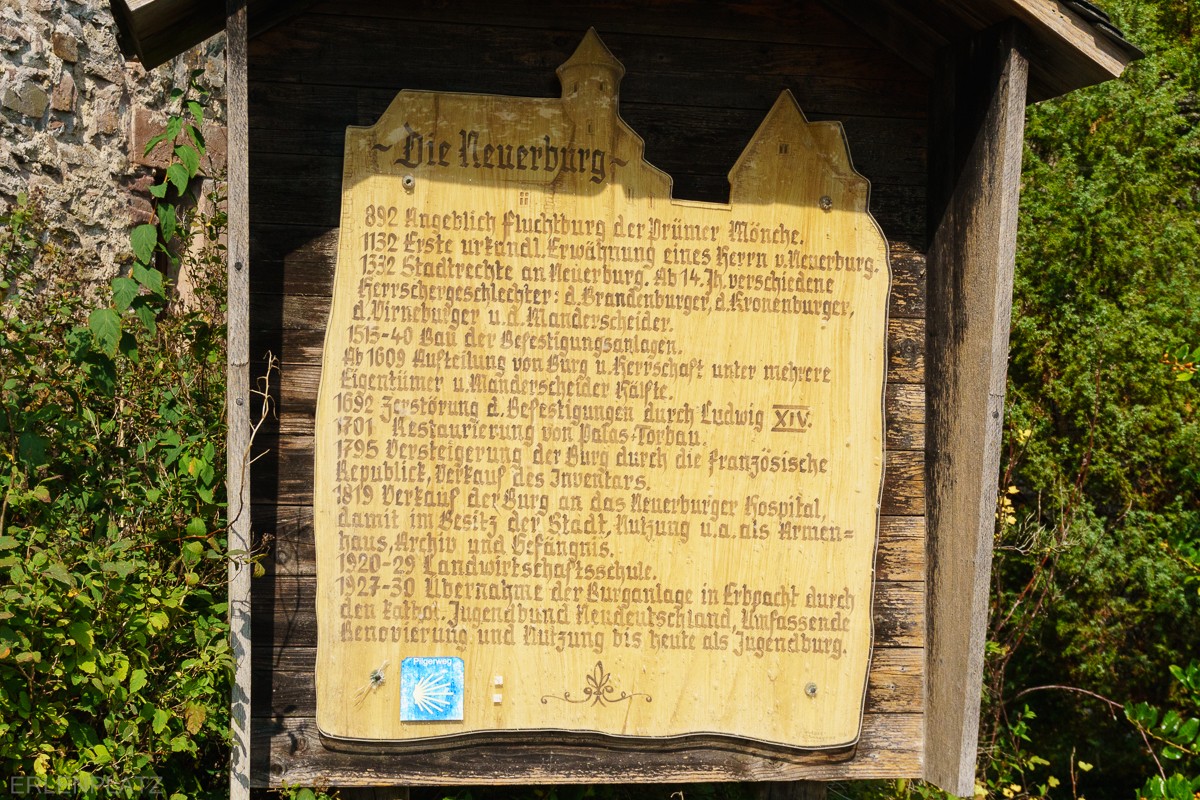 ~Die Neuerburg~
892 Angeblich Fluchtburg der Prümer Mönche.
1132 Erste urkundl. Erwähnung eines Herrn v. Neuerburg.
1332 Stadtrechte an Neuerburg. Ab 14. Jh. verschiedene
Herrschergeschlechter: d. Brandenburger, d. Kronenburger,
d. Virneburger u. d. Manderscheider.
1515-40 Bau der Befestigungsanlagen.
Ab 1609 Aufteilung von Burg u. Herrschaft unter mehrere
Eigentümer u. Manderscheider Hälfte.
1692 Zerstörung d. Befestigungen durch Ludwig XIV.
1701 Restaurierung von Palas-Torbau.
1795 Versteigerung der Burg durch die Französische
Republick, Verkauf des Inventars.
1819 Verkauf der Burg an das Neuerburger Hospital,
damit im Besitz der Stadt, Nutzung u.a. als Armen=
haus, Archiv und Gefängnis.
1920-29 Landwirtschaftsschule.
1927-30 Übernahme der Burganlage in Erbpacht durch
den kathol. Jugendbund Neudeutschland, Umfassende
Renovierung und Nutzung bis heute als Jugendburg.
Pilgerweg
ERLENPLATZ